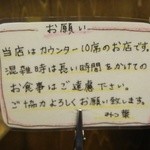 お願い
当店はカウンター10席のお店です。
混雑時は長い時間をかけての
お食事はご遠慮下さい。
ご協力よろしくお願い致します。